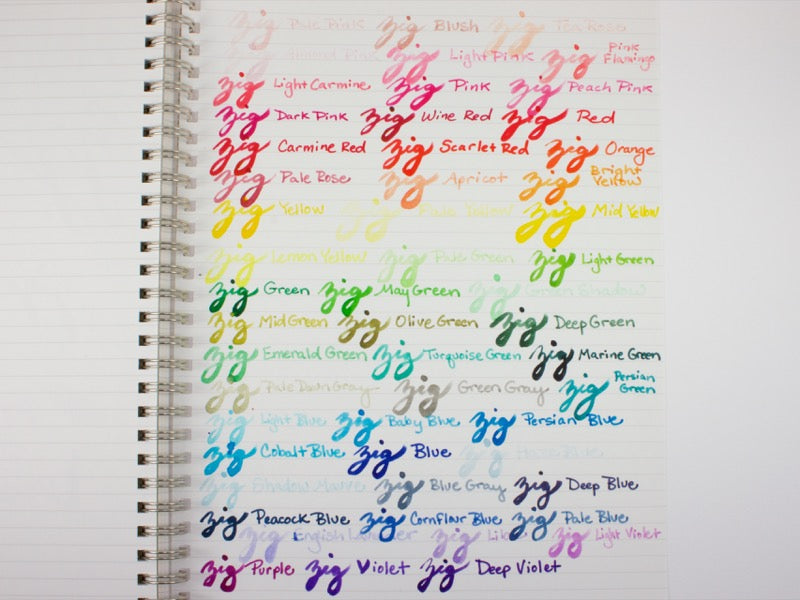 zig Pale Pink zig Blush zig Tea Rose
zig Almond Pink zig Light Pink zig Pink Flamingo
zig Light Carmine zig Pink zig Peach Pink
zig Dark Pink zig Wine Red zig Red
zig Carmine Red zig Scarlet Red zig Orange
zig Pale Rose zig Apricot zig Bright Yellow
zig Yellow zig Pale Yellow zig Mid Yellow
zig Lemon Yellow zig Pale Green zig Light Green
zig Green zig May Green zig Green Shadow
zig Mid Green zig Olive Green zig Deep Green
zig Emerald Green zig Turquoise Green zig Marine Green
zig Pale Dawn Gray zig Green Gray zig Persian Green
zig Light Blue zig Baby Blue zig Persian Blue
zig Cobalt Blue zig Blue zig Haze Blue
zig Shadow Mauve zig Blue Gray zig Deep Blue
zig Peacock Blue zig Cornflour Blue zig Pale Blue
zig English Lavender zig zig Light Violet
zig Purple zig Violet zig Deep Violet